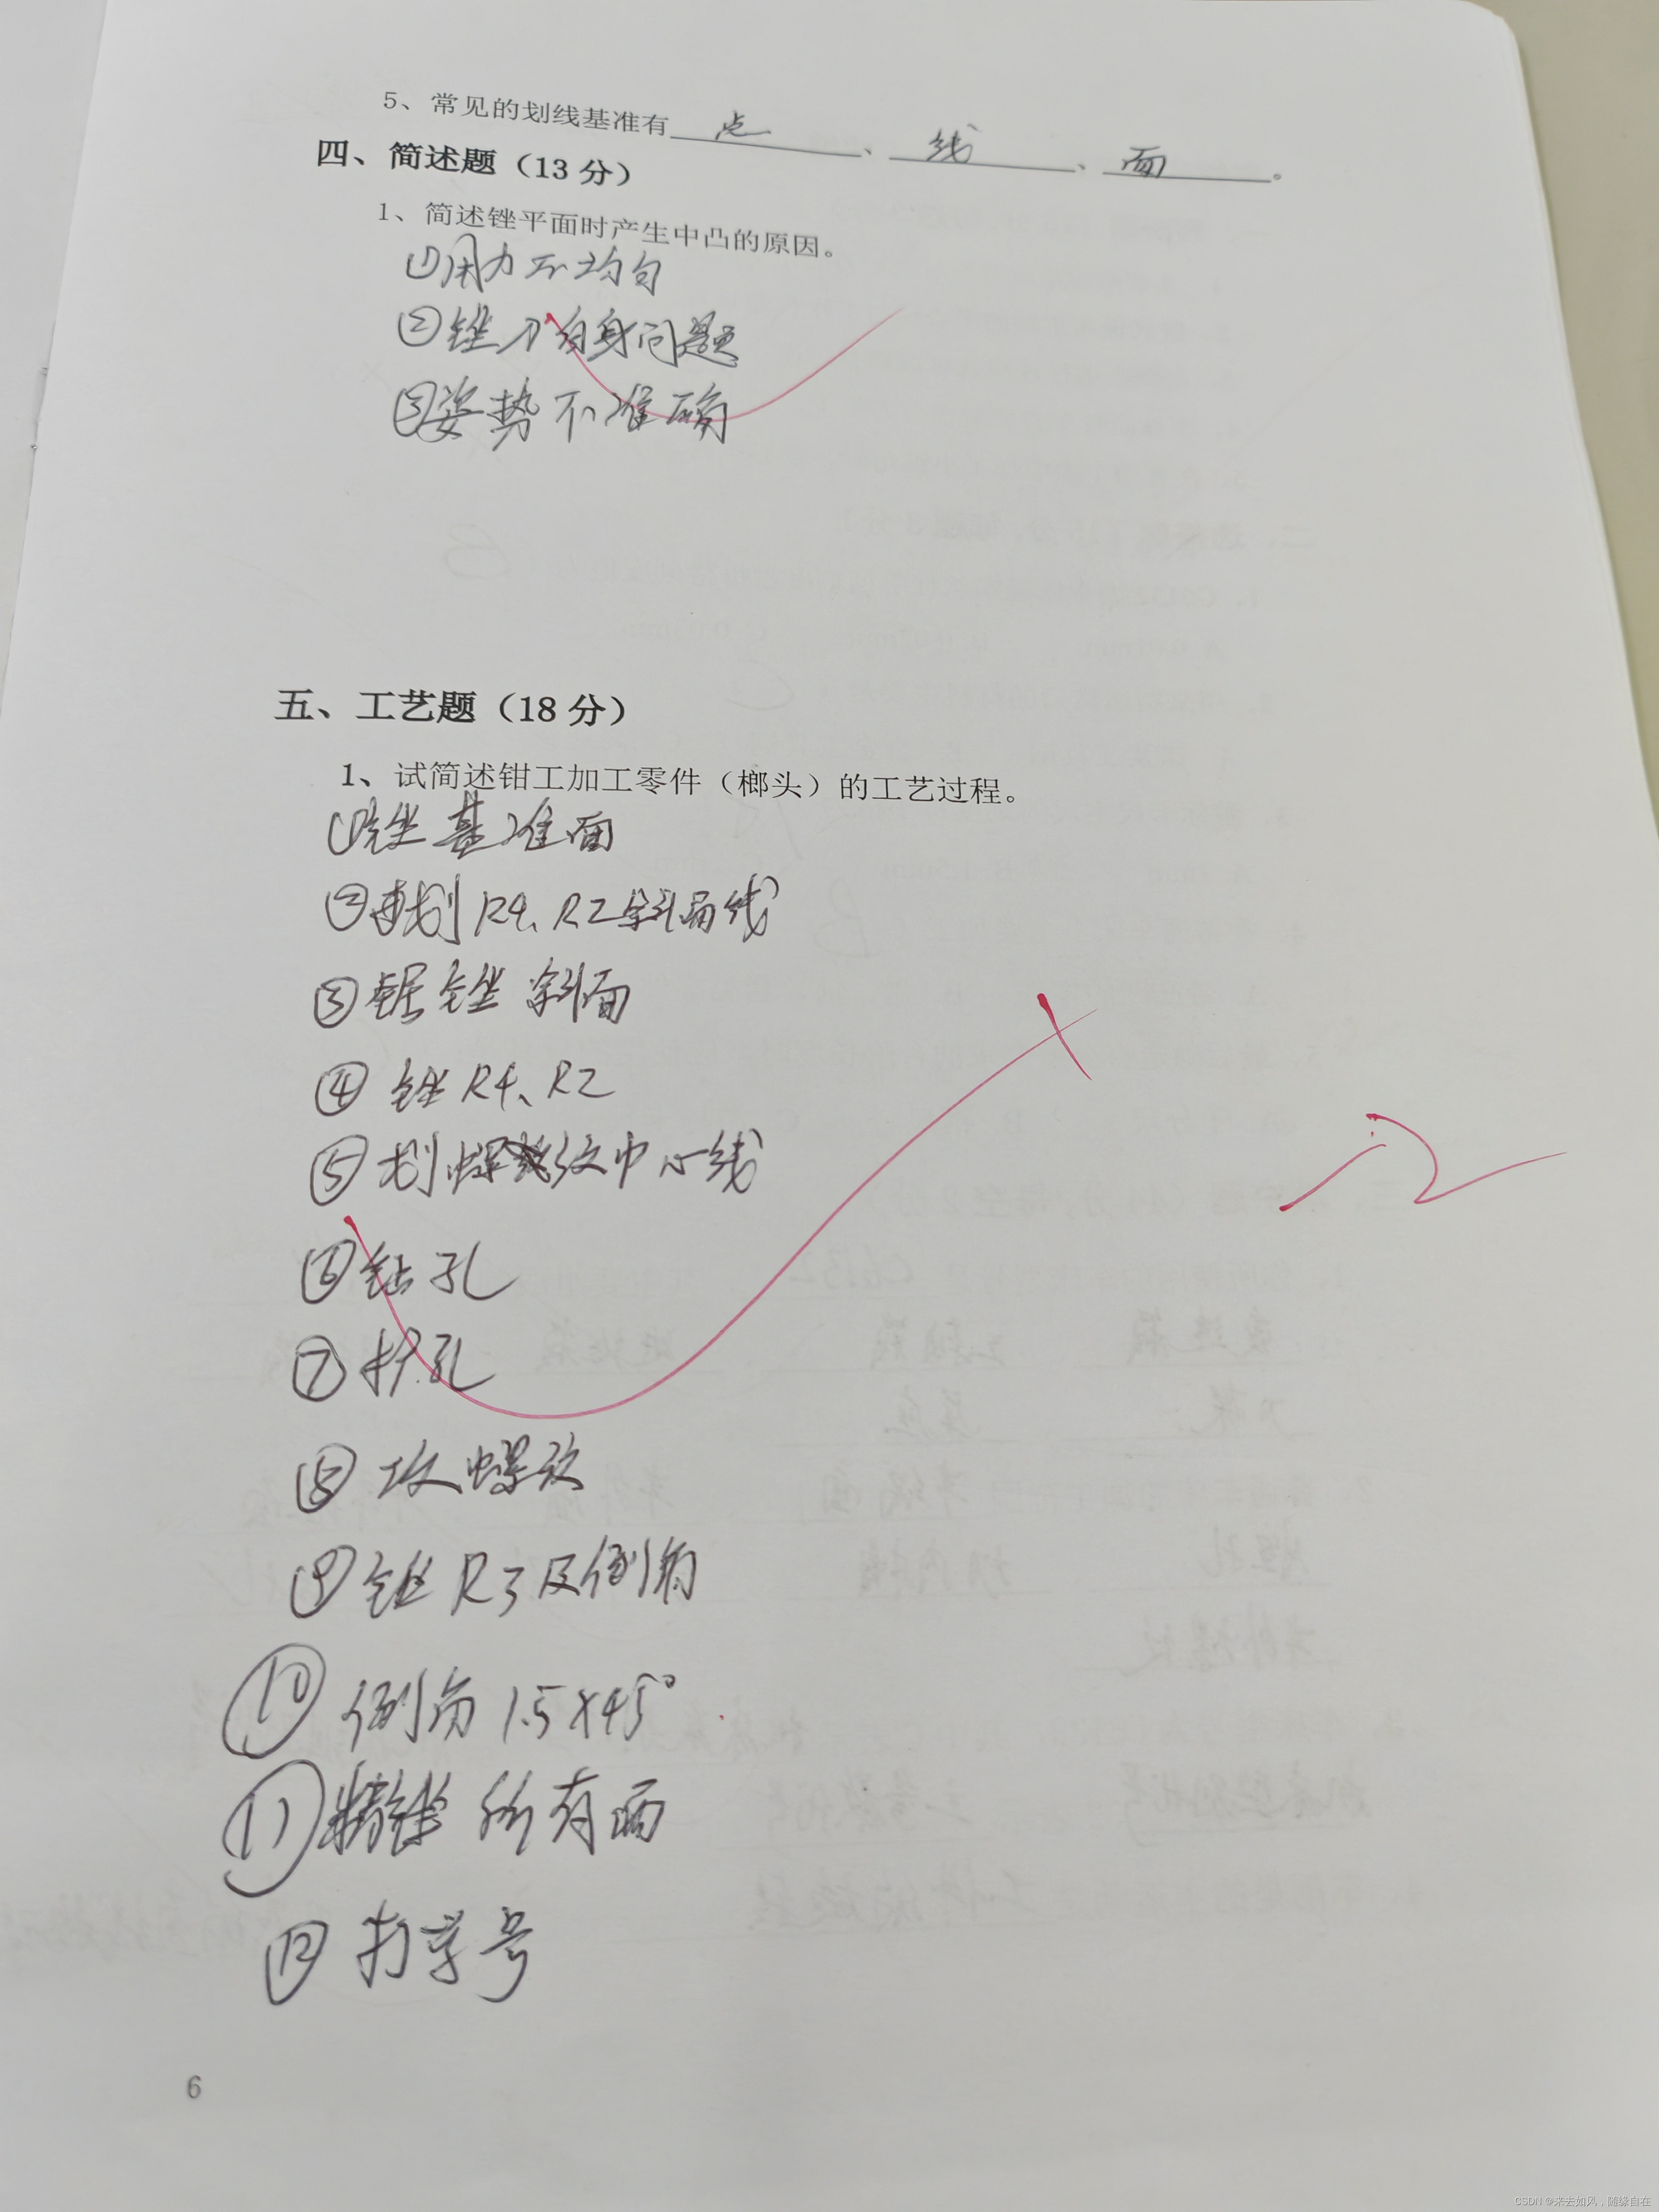 5、常见的划线基准有 点 、 线 、 面 。
四、简述题（13 分）
1、简述锉平面时产生中凸的原因。
①用力不均匀
②锉刀自身问题
③姿势不准确
五、工艺题（18 分）
1、试简述钳工加工零件（榔头）的工艺过程。
①锉基准面
②划R4、R2斜面线
③锯锉斜面
④锉R4、R2
⑤划螺纹中心线
⑥钻孔
⑦扩孔
⑧攻螺纹
⑨锉R3及倒角
⑩倒角1.5×45°
⑪精锉所有面
⑫打学号
-2
6
CSDN @来去如风，随缘自在